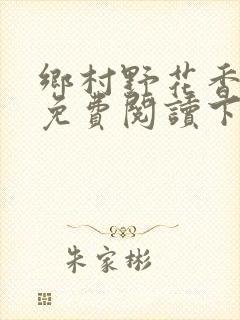 鄉村野花香
免費閱讀下
朱家彬